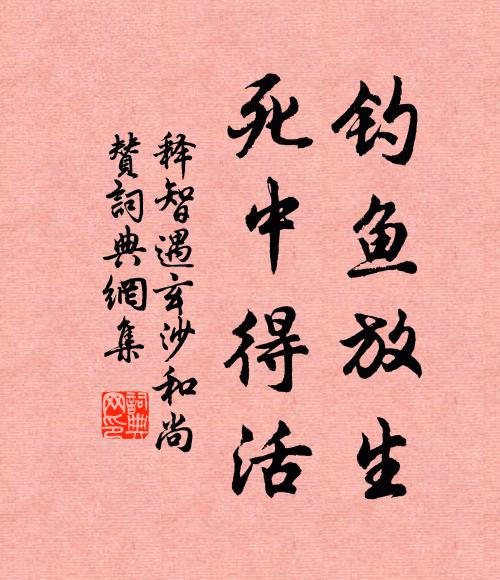 钓鱼放生
死中得活
释智遇玄沙和尚
赞詞典網集
詞典
网印